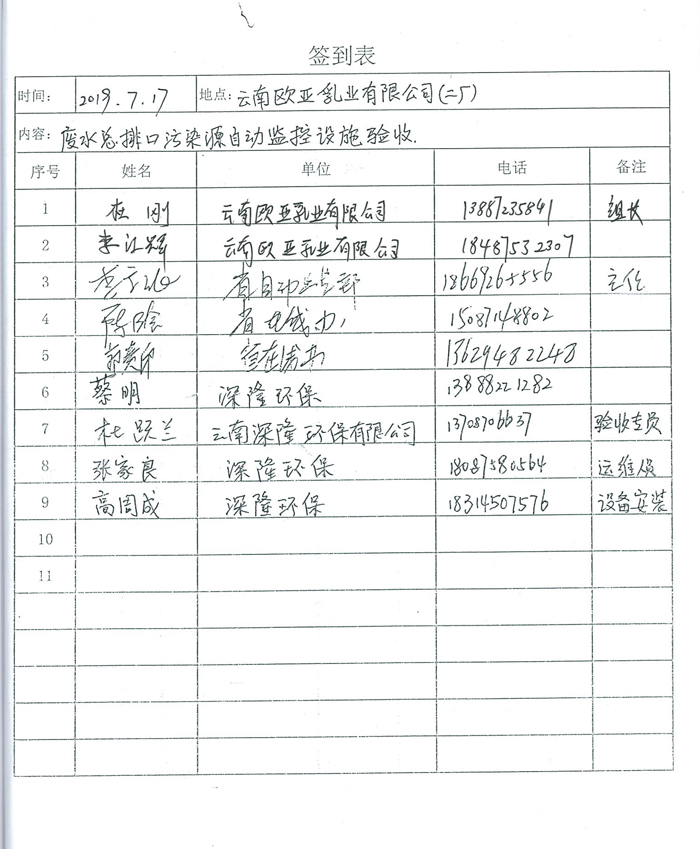 签到表
时间: 2019.7.17 地点: 云南欧亚乳业有限公司(二厂)
内容: 废水总排口污染源自动监控设施验收.
序号 姓名 单位 电话 备注
1 杜刚 云南欧亚乳业有限公司 13887235841 组长
2 李江辉 云南欧亚乳业有限公司 18487532307
3 省自动 18669265556 主任
4 省 15087148802
5 13629482248
6 蔡明 深隆环保 13888221282
7 杜跃兰 云南深隆环保有限公司 13708706637 验收专员
8 张家良 深隆环保 18087580564 运维人员
9 高周成 深隆环保 18314507576 设备安装
10
11